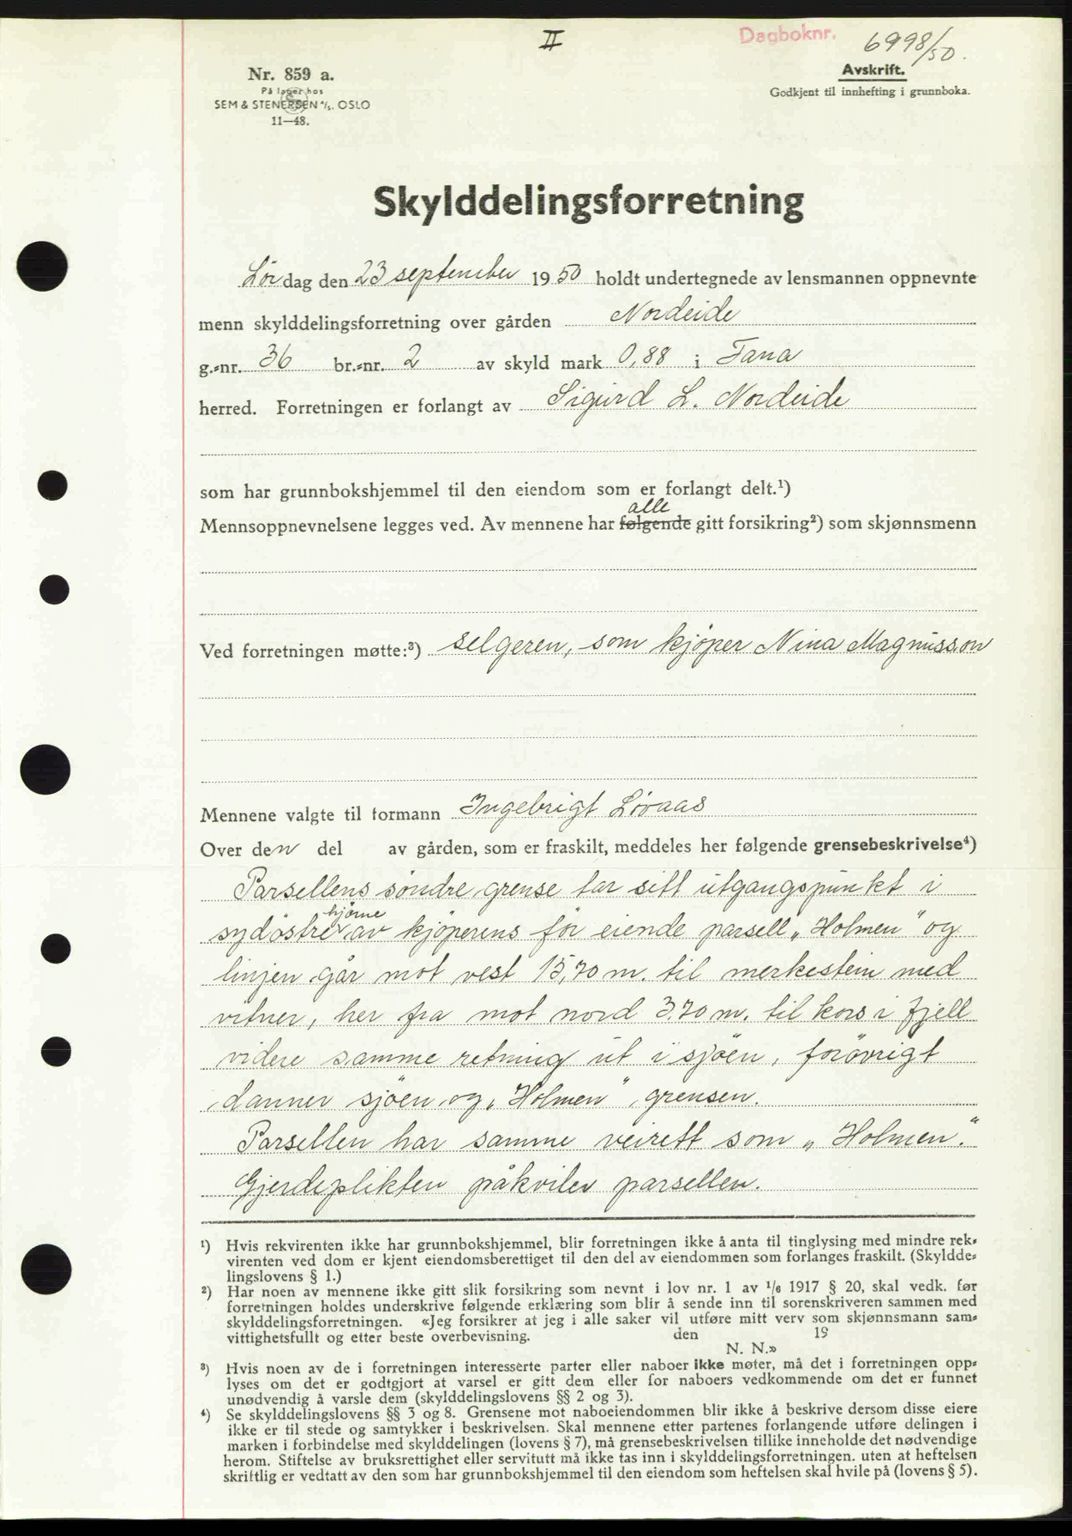 II
Dagboknr. 6998/50.
Nr. 859 a.
På lager hos
SEM & STENERSEN A/S. OSLO
11—48.
Avskrift.
Godkjent til innhefting i grunnboka.
Skylddelingsforretning
Lørdag den 23 september 1950 holdt undertegnede av lensmannen oppnevnte
menn skylddelingsforretning over gården Nordeide
g.-nr. 36 br.-nr. 2 av skyld mark 0,88 i Fana
herred. Forretningen er forlangt av Sigurd L. Nordeide
som har grunnbokshjemmel til den eiendom som er forlangt delt.¹)
alle
Mennsoppnevnelsene legges ved. Av mennene har følgende gitt forsikring²) som skjønnsmenn
Ved forretningen møtte:³) selgeren, som kjöper Nina Magnusson
Mennene valgte til formann Ingebrigt Löraas
Over den del av gården, som er fraskilt, meddeles her følgende grensebeskrivelse⁴)
Parsellens söndre grense tar sitt utgangspunkt i
hjörne
sydöstre av kjöperens för eiende parsell „Holmen" og
linjen går mot vest 15,70 m. til merkestein med
vitner, her fra mot nord 3.70 m. til kors i fjell
videre samme retning ut i sjöen, forövrigt
danner sjöen og „Holmen" grensen.
Parsellen har samme veirett som „Holmen".
Gjerdeplikten påkviler parsellen.
¹) Hvis rekvirenten ikke har grunnbokshjemmel, blir forretningen ikke å anta til tinglysing med mindre rek-
virenten ved dom er kjent eiendomsberettiget til den del av eiendommen som forlanges fraskilt. (Skyldde-
lingslovens § 1.)
²) Har noen av mennene ikke gitt slik forsikring som nevnt i lov nr. 1 av 1/6 1917 § 20, skal vedk. før
forretningen holdes underskrive følgende erklæring som blir å sende inn til sorenskriveren sammen med
skylddelingsforretningen. «Jeg forsikrer at jeg i alle saker vil utføre mitt verv som skjønnsmann sam-
vittighetsfullt og etter beste overbevisning. den 19
N. N.»
³) Hvis noen av de i forretningen interesserte parter eller naboer ikke møter, må det i forretningen opp-
lyses om det er godtgjort at varsel er gitt dem eller for naboers vedkommende om det er funnet
unødvendig å varsle dem (skylddelingslovens §§ 2 og 3).
⁴) Se skylddelingslovens §§ 3 og 8. Grensene mot naboeiendommen blir ikke å beskrive dersom disse eiere
ikke er til stede og samtykker i beskrivelsen. Skal mennene etter partenes forlangende utføre delingen i
marken i forbindelse med skylddelingen (lovens § 7), må grensebeskrivelsen tillike inneholde det nødvendige
herom. Stiftelse av bruksrettighet eller servitutt må ikke tas inn i skylddelingsforretningen. uten at heftelsen
skriftlig er vedtatt av den som har grunnbokshjemmel til den eiendom som heftelsen skal hvile på (lovens § 5).